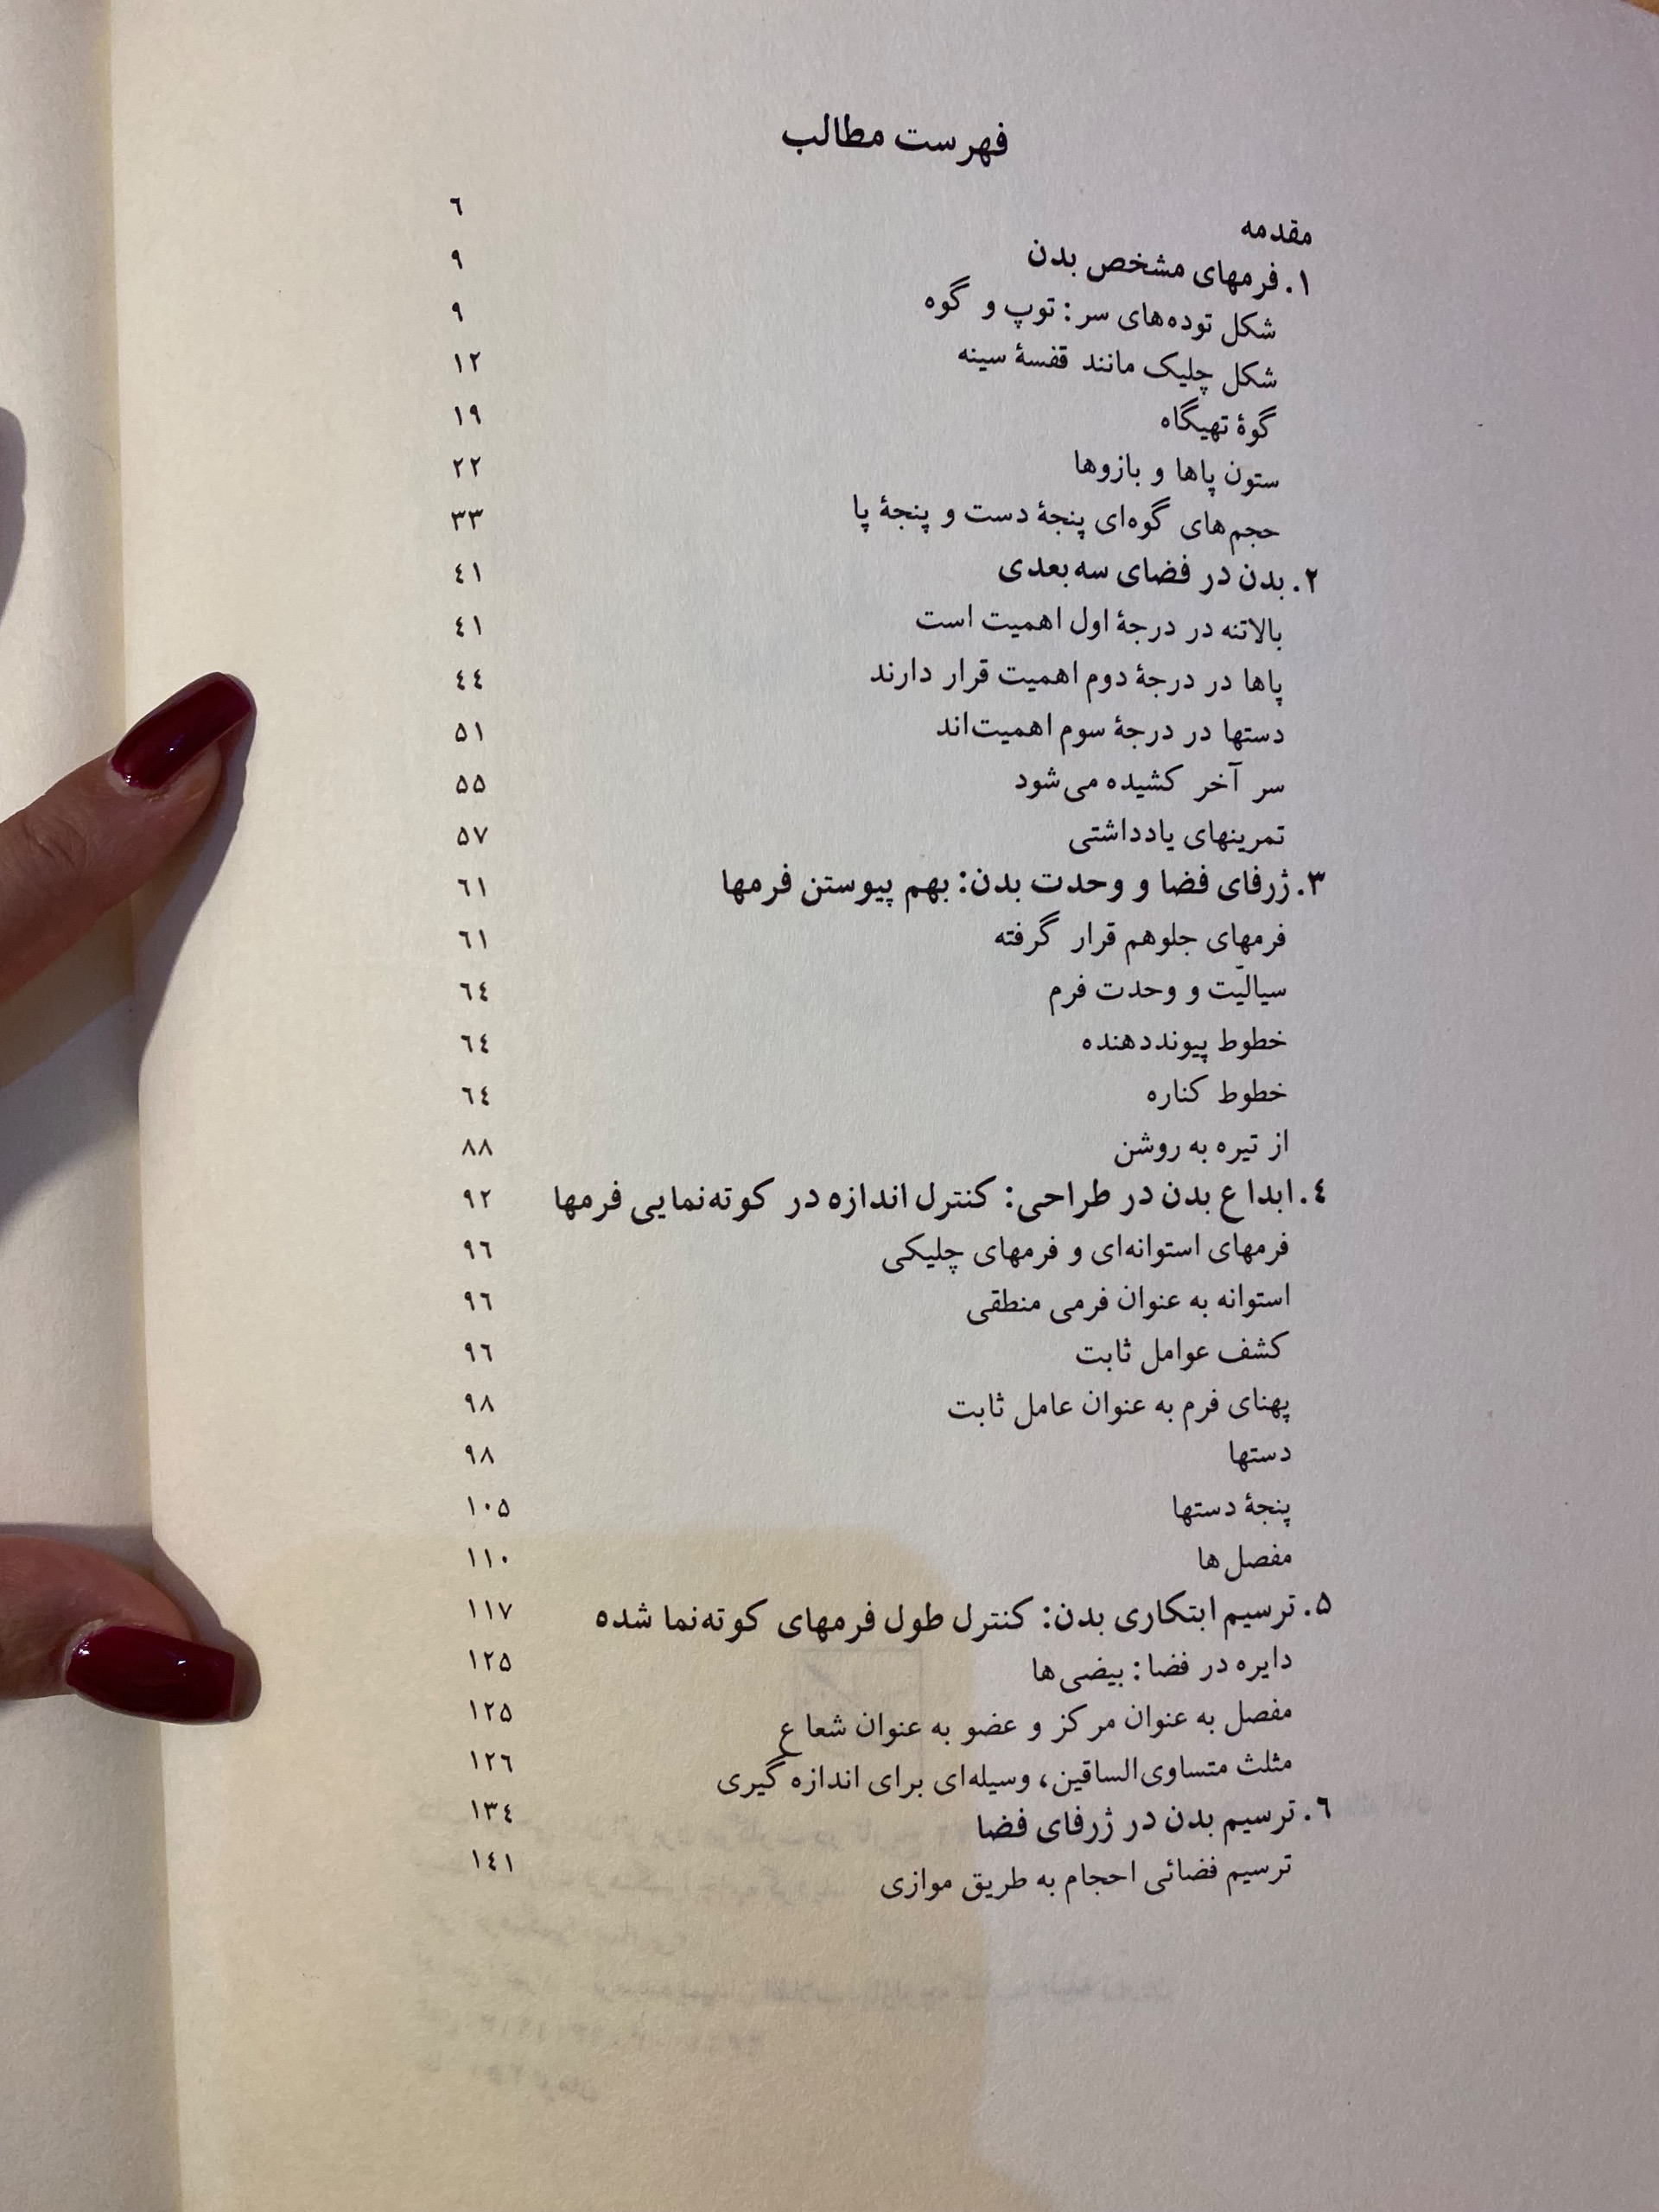 فهرست مطالب
مقدمه ٦
۱. فرمهای مشخص بدن ۹
شکل توده‌های سر: توپ و گوه ۹
شکل چلیک مانند قفسهٔ سینه ۱۲
گوهٔ تهیگاه ۱۹
ستون پاها و بازوها ۲۲
حجم‌های گوه‌ای پنجهٔ دست و پنجهٔ پا ۳۳
۲. بدن در فضای سه بعدی ٤۱
بالاتنه در درجهٔ اول اهمیت است ٤۱
پاها در درجهٔ دوم اهمیت قرار دارند ٤٤
دستها در درجهٔ سوم اهمیت‌اند ۵۱
سر آخر کشیده می‌شود ۵۵
تمرینهای یادداشتی ۵۷
۳. ژرفای فضا و وحدت بدن: بهم پیوستن فرمها ٦۱
فرمهای جلوهم قرار گرفته ٦۱
سیالیّت و وحدت فرم ٦٤
خطوط پیونددهنده ٦٤
خطوط کناره ٦٤
از تیره به روشن ۸۸
٤. ابداع بدن در طراحی: کنترل اندازه در کوته‌نمایی فرمها ۹۲
فرمهای استوانه‌ای و فرمهای چلیکی ۹٦
استوانه به عنوان فرمی منطقی ۹٦
کشف عوامل ثابت ۹٦
پهنای فرم به عنوان عامل ثابت ۹۸
دستها ۹۸
پنجهٔ دستها ۱۰۵
مفصل‌ها ۱۱۰
۵. ترسیم ابتکاری بدن: کنترل طول فرمهای کوته‌نما شده ۱۱۷
دایره در فضا: بیضی‌ها ۱۲۵
مفصل به عنوان مرکز و عضو به عنوان شعاع ۱۲۵
مثلث متساوی‌الساقین، وسیله‌ای برای اندازه گیری ۱۲٦
٦. ترسیم بدن در ژرفای فضا ۱۳٤
ترسیم فضائی احجام به طریق موازی ۱٤۱